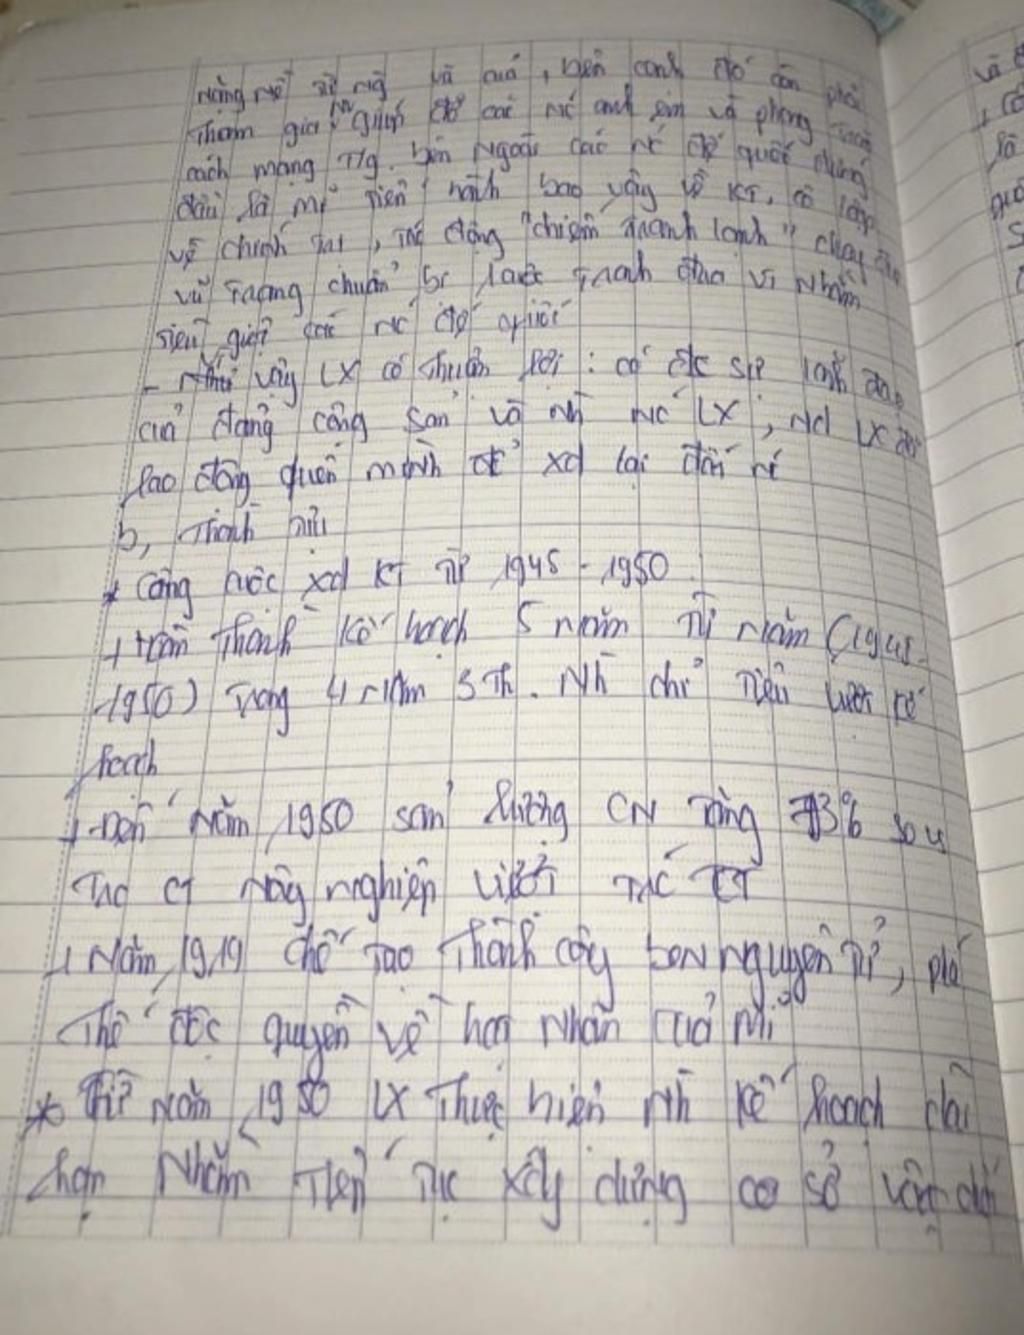 và quá, bên cạnh đó còn phải
Tham gia giúp đỡ các nc anh em và phong trào
cách mạng T/g. bên ngoài các nc đế quốc đứng
đầu là mĩ tiến hành bao vây về KT, cô lập
về chính trị, phát động "chiến tranh lạnh" chạy đua
vũ trang chuẩn bị cuộc
tiêu diệt các nc đế quốc
- Như vậy LX có thuận lợi: có đc sự lãnh đạo
của đảng cộng sản và nh nc LX, Nd LX đã
lao động quên mình để xd lại đất nc
b, Thành tựu
* Công cuộc xd KT từ 1945 - 1950
+ Hoàn thành kế hoạch 5 năm từ năm (1945-
-1950) Trong 4 năm 3 th. Nh chỉ tiêu vượt kế
hoạch
+ Đến năm 1950 sản lượng CN tăng 73% so v
Trc CT nông nghiệp vượt trc CT
+ Năm 1949 chế tạo thành công bom nguyên tử, phá
thế độc quyền về hạt nhân của Mĩ
* Từ năm 1950 LX thực hiện nh kế hoạch dài
hạn nhằm tiếp tục xây dựng cơ sở vật chất